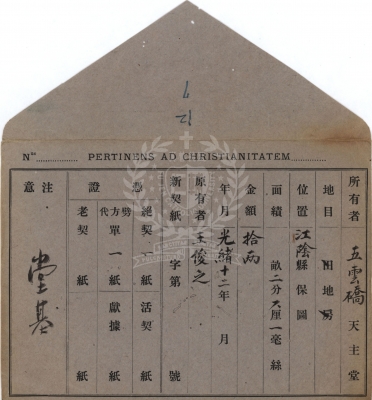 Nos ............ PERTINENS AD CHRISTIANITATEM ............
所有者 五雲橋 天主堂
地目 田地房
位置 江陰縣 保 圖
面積 畝二分六厘一毫 絲
金額 拾兩
年月 光緒十二年 月
原有者 王俊之
新契紙 字第 號
憑證 絕契一紙 活契 紙
代方單一紙 獻據 紙
老契 紙
注意
堂基